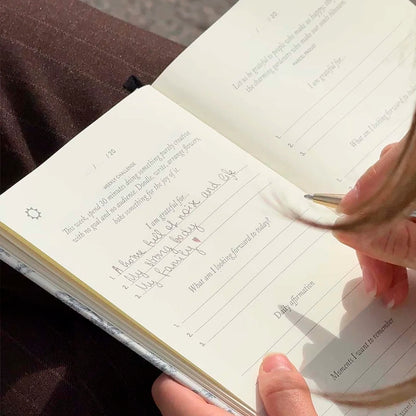 / / 20
WEEKLY CHALLENGE
This week, spend 30 minutes doing something purely creative
with no goal and no audience. Doodle, write, arrange flowers,
bake something for the joy of it.
I am grateful for...
1. A home full of noix and life
2. My strong body
3. My family
What am I looking forward to today?
1.
2.
3.
Daily affirmation
Moments I want to remember
/ / 20
Let us be grateful to people who make us happy, they are
the charming gardeners who make our souls blossom.
MARCEL PROUST
I am grateful for...
1.
2.
3.
What am I looking
1.